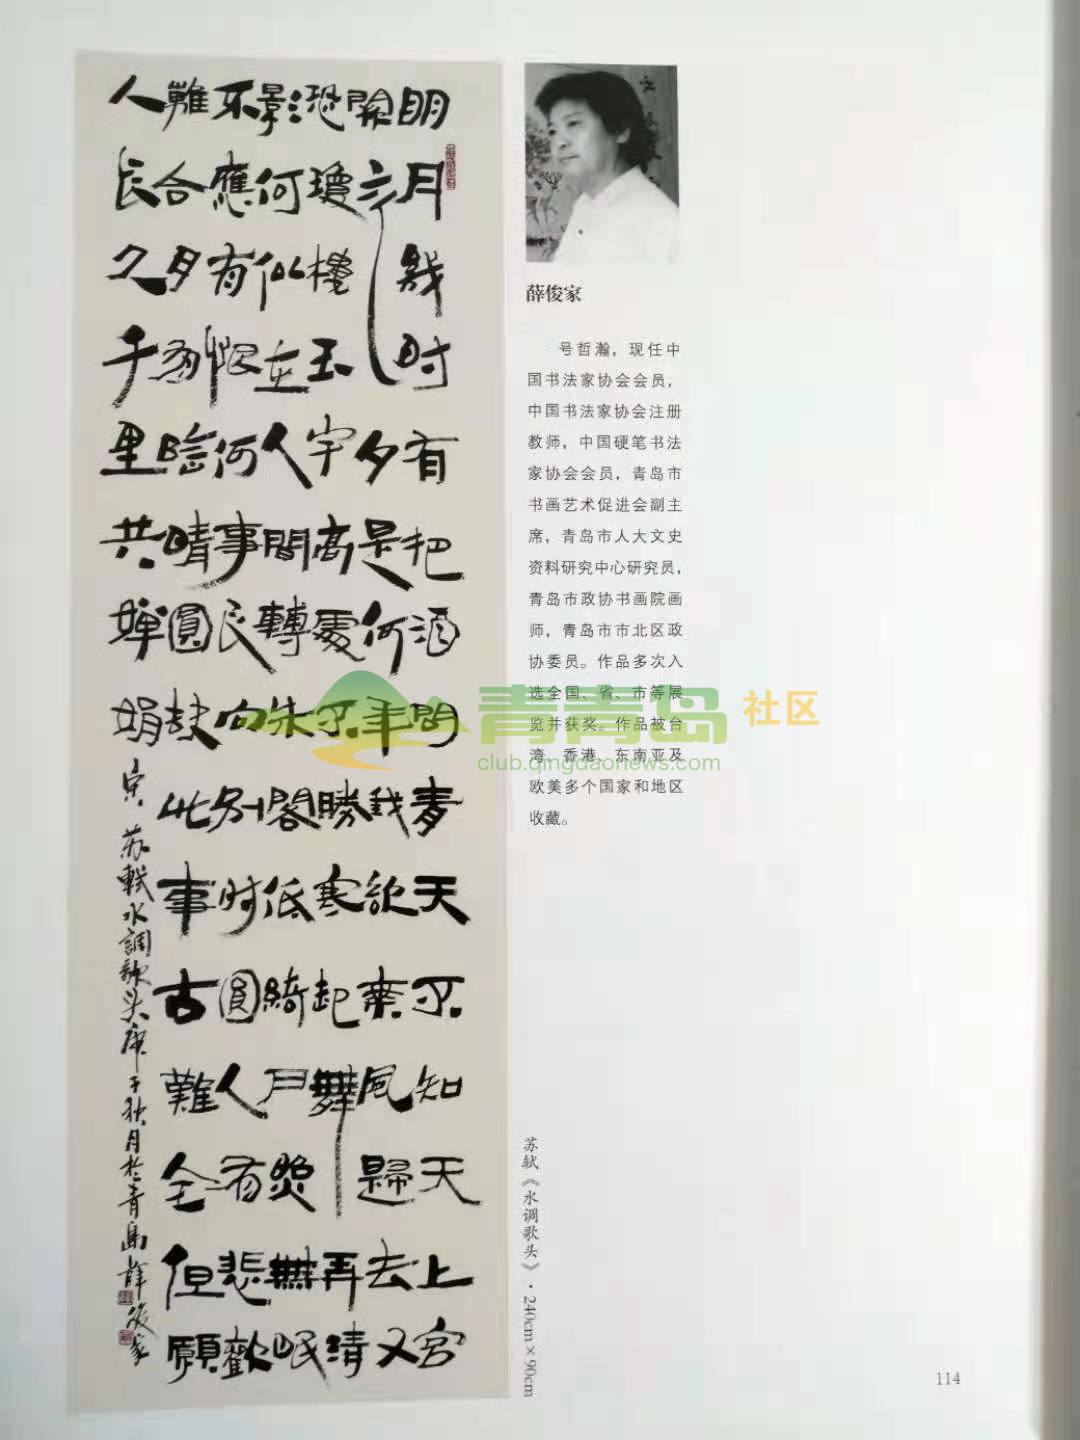 明月幾时有把酒問青天不知天上宫
闕今夕是何年我欲乘風歸去又
恐瓊樓玉宇高處不勝寒起舞弄清
影何似在人間轉朱閣低綺户照無眠
不應有恨何事長向别时圓人有悲歡
離合月有陰晴圓缺此事古難全但願
人長久千里共嬋娟
宋苏軾水調歌头庚子秋月於青島薛俊家
薛俊家
号哲瀚，现任中
国书法家协会会员，
中国书法家协会注册
教师，中国硬笔书法
家协会会员，青岛市
书画艺术促进会副主
席，青岛市人大文史
资料研究中心研究员，
青岛市政协书画院画
师，青岛市市北区政
协委员。作品多次入
选全国、省、市等展
览并获奖。作品被台
湾、香港、东南亚及
欧美多个国家和地区
收藏。
青青岛社区
club.qingdaonews.com
苏轼《水调歌头》·240cm×90cm
114